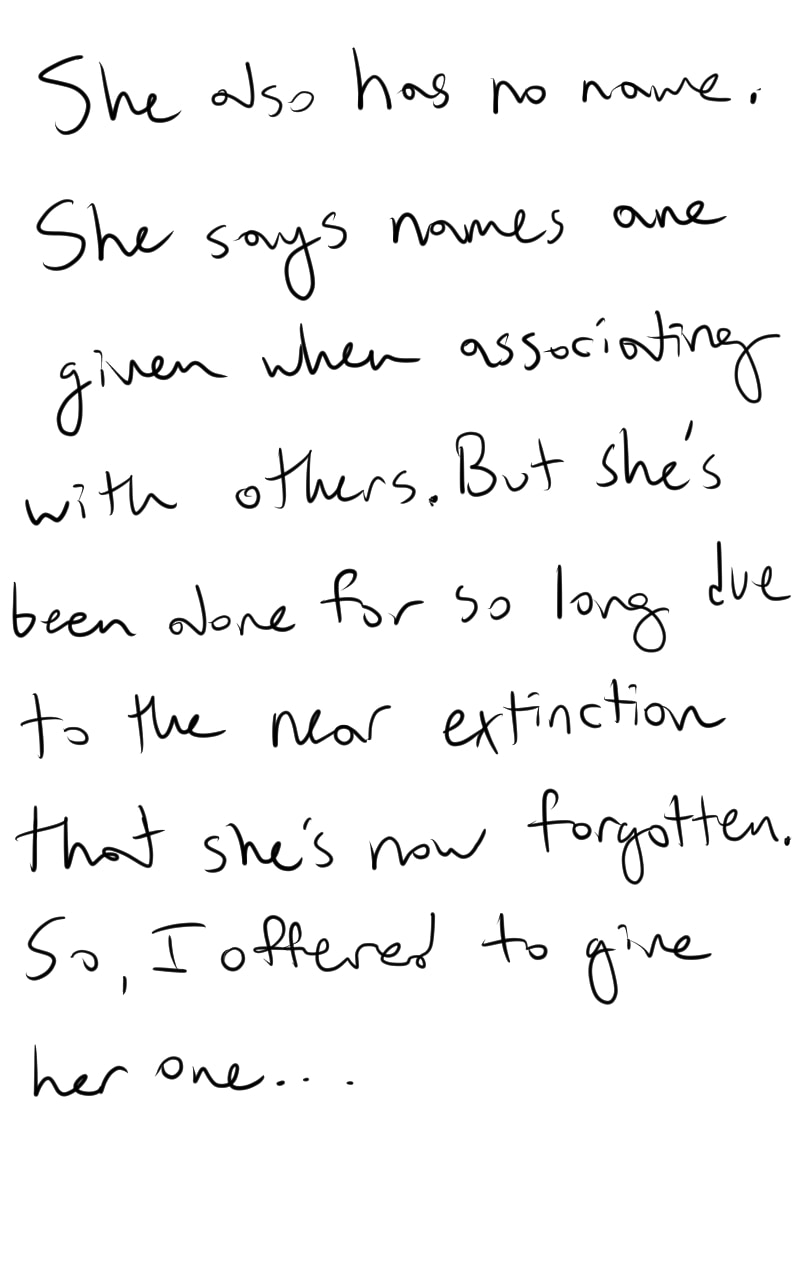 She also has no name.
She says names are
given when associating
with others. But she's
been alone for so long due
to the near extinction
that she's now forgotten.
So, I offered to give
her one...